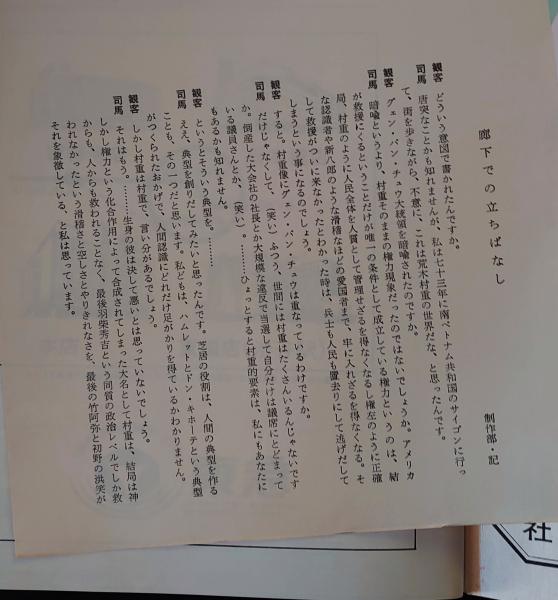 廊下での立ちばなし
制作部・記
観客　どういう意図で書かれたんですか。
司馬　唐突なことかも知れませんが、私は七十三年に南ベトナム共和国のサイゴンに行っ
て、街を歩きながら、不意に、これは荒木村重の世界だな、と思ったんです。
観客　グェン・バン・チュウ大統領を暗喩されたのですか。
司馬　暗喩というより、村重そのままの権力現象だったのではないでしょうか。アメリカ
が救援にくるということだけが唯一の条件として成立している権力というのは、結
局、村重のように人民全体を人質として管理せざるを得なくなるし権左のように正確
な認識者や新八郎のような滑稽なほどの愛国者まで、牢に入れざるを得なくなる。そ
して救援がついに来なかったとわかった時は、兵士も人民も置去りにして逃げだして
しまうという事になるのでしょう。
観客　すると。村重像にグェン・バン・チュウは重なっているわけですか。
司馬　だけじゃなくして、（笑い）ふつう、世間には村重はたくさんいるんじゃないです
か。倒産した大会社の社長とか大規模な違反で当選して自分だけは議席にとどまって
いる議員さんとか、（笑い）。………ひょっとすると村重的要素は、私にもあなたに
もあるかも知れません。
観客　というとそういう典型を。………
司馬　ええ、典型を創りだしてみたいと思ったんです。芝居の役割は、人間の典型を作る
ことも、その一つだと思います。私どもは、ハムレットとドン・キホーテという典型
がつくられたおかげで、人間認識にどれだけ足がかりを得ているかわかりません。
観客　しかし村重は村重で、言い分があるでしょう。
司馬　それはもう。………生身の彼は決して悪いとは思っていないでしょう。
しかし権力という化合作用によって合成されてしまった大名として村重は、結局は神
からも、人からも救われることなく、最後羽柴秀吉という同質の政治レベルでしか救
われなかったという滑稽さと空しさとやりきれなさを、最後の竹阿弥と初野の洪笑が
それを象徴している、と私は思っています。
社